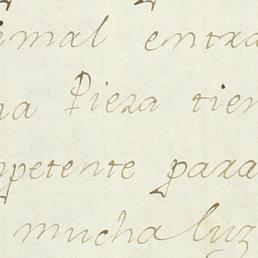 imal entra
na Pieza tien
mpetente para
mucha luz